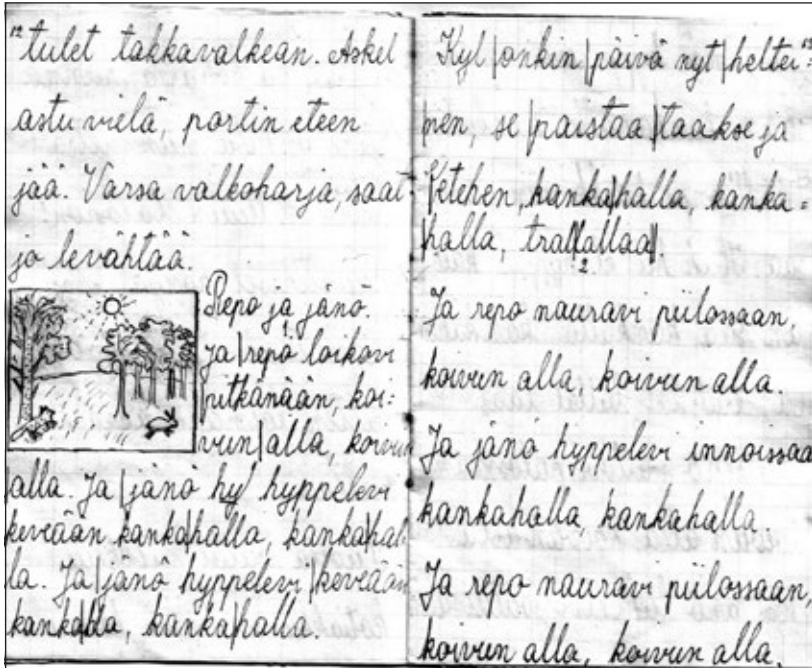 12
tulet takkavalkean. Askel
astu vielä, portin eteen
jää. Varsa valkoharja, saat
jo levähtää.
Repo ja jänö.
1
Ja|repo loikovi
pitkänään, koi=
vun|alla, koivun
alla. Ja|jänö hy hyppelevi
keveään kanka|halla, kanka|hal
la. Ja|jänö hyppelevi|keveään
kanka|lla, kanka|halla.
13
Kyl|onkin|päivä nyt|heltei=
nen, se|paistaa|taakse ja
|etehen, kanka|halla, kanka=
|halla, tral|lallaa||
2
Ja repo nauravi piilossaan,
koivun alla, koivun alla.
Ja jänö hyppelevi innoissaa
kankahalla, kankahalla.
Ja repo nauravi piilossaan,
koivun alla, koivun alla,